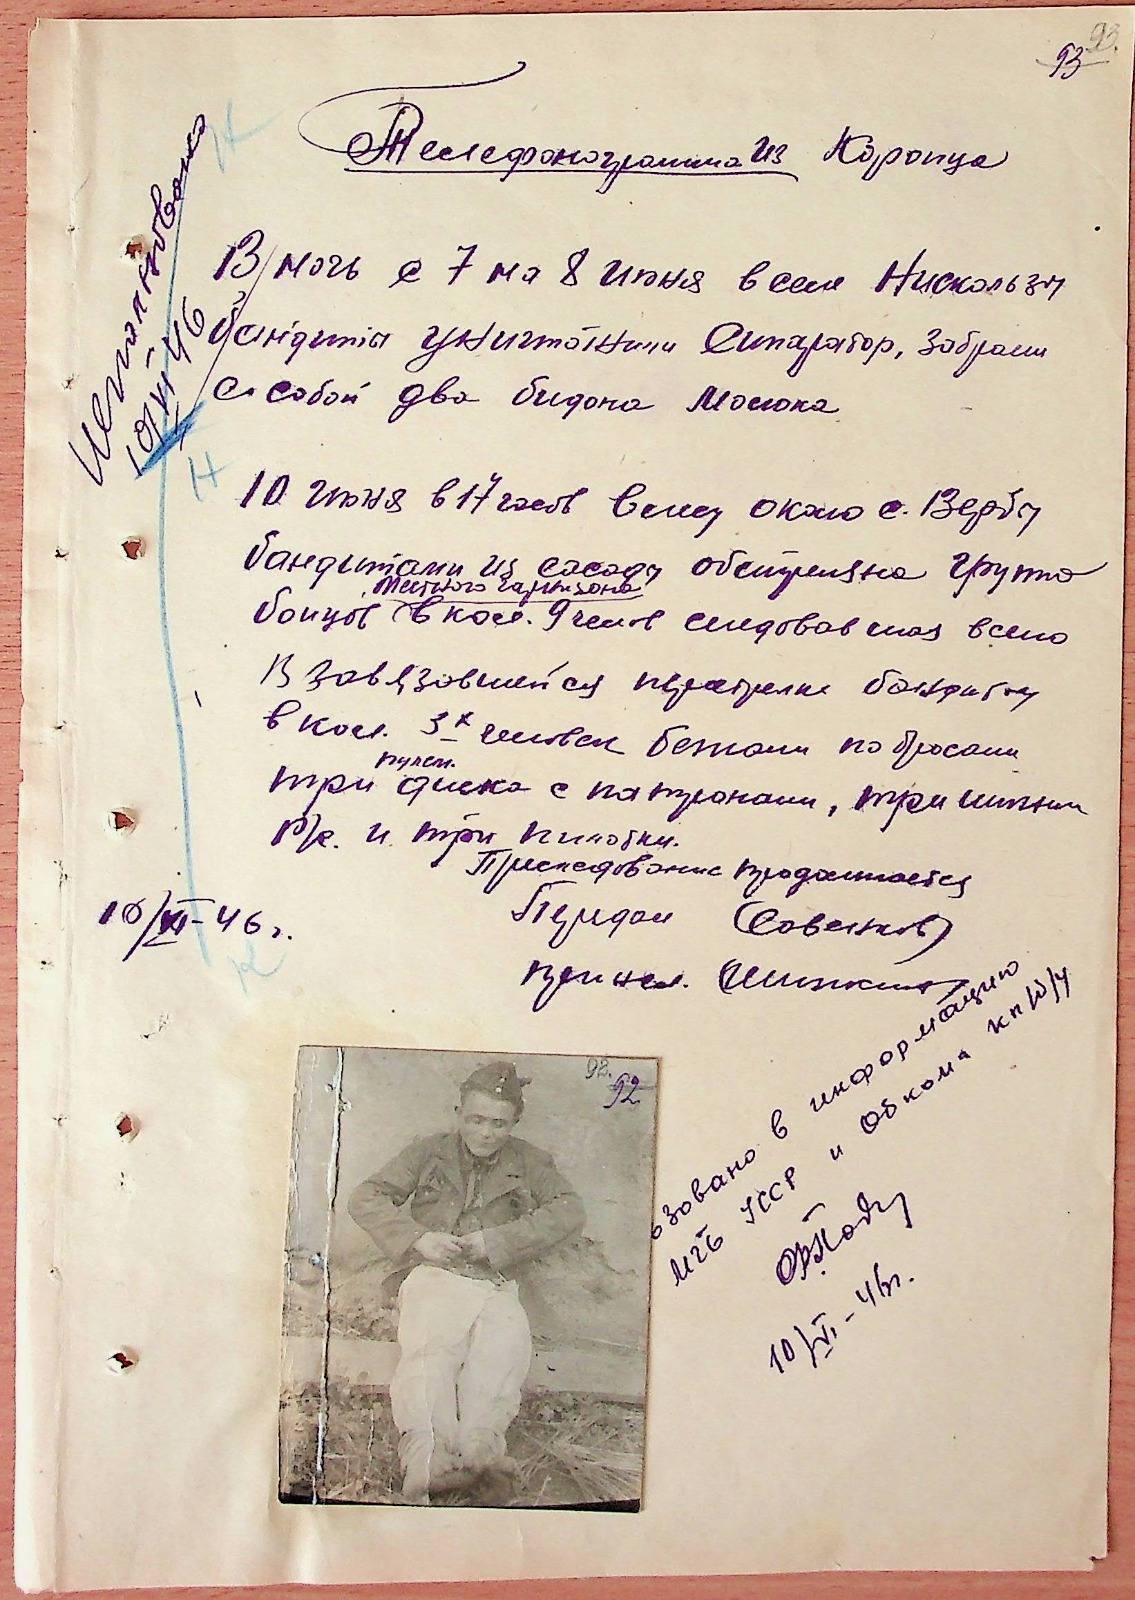 93
93.
Телефонограмма из Коропца
В ночь с 7 на 8 июня в селе Нискользы
бандиты уничтожили Сипаратор, забрали
с собой два бидона Молока
10 июня в 17 часов в лесу около с. Вербы
бандитами из засады обстреляна группа
местного гарнизона
бойцов в кол. 9 челов следовавшая в село
В завязавшейся перестрелке бандиты
в кол. 3х человек бежали побросали
пулем.
три диска с патронами, три
и три пилотки.
Преследование продолжается
10/VI-46 г.
Передал
принял.
10/VI 46
Н
Н
К
92.
92
зовано в информацию
МГБ УССР и Обкома КП/б/У
10/VI-46г.